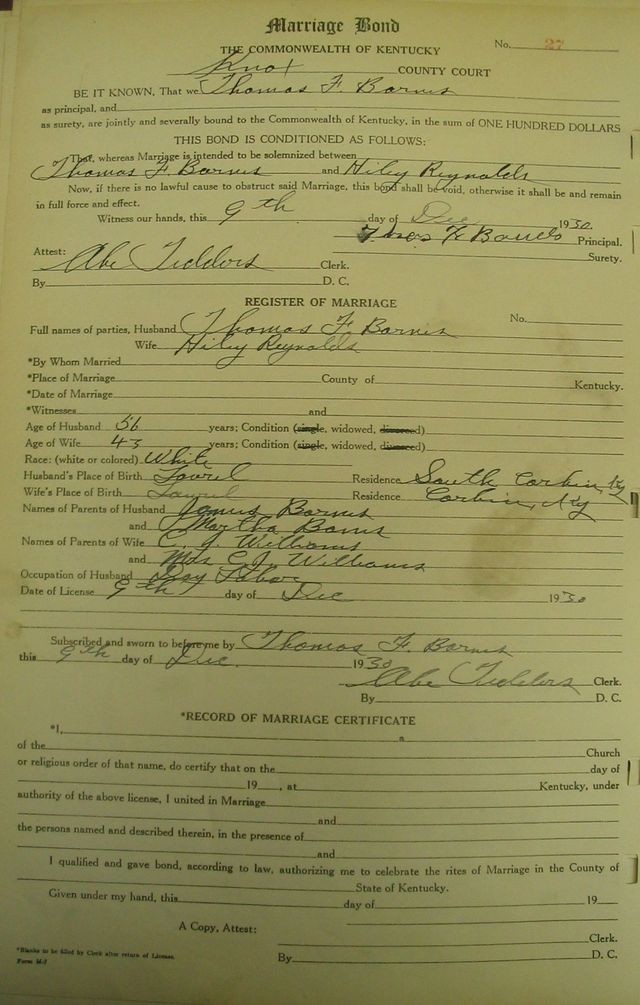 Marriage Bond
THE COMMONWEALTH OF KENTUCKY
No. 27
Knox COUNTY COURT
BE IT KNOWN, That we Thomas F. Barnes
as principal, and
as surety, are jointly and severally bound to the Commonwealth of Kentucky, in the sum of ONE HUNDRED DOLLARS
THIS BOND IS CONDITIONED AS FOLLOWS:
That, whereas Marriage is intended to be solemnized between
Thomas F. Barnes and Hiley Reynolds
Now, if there is no lawful cause to obstruct said Marriage, this bond shall be void, otherwise it shall be and remain
in full force and effect.
Witness our hands, this 9th day of Dec 1930.
Principal.
Attest: Surety.
Abe Tedders Clerk.
By D. C.
REGISTER OF MARRIAGE
No.
Full names of parties, Husband Thomas F. Barnes
Wife Hiley Reynolds
*By Whom Married
*Place of Marriage County of Kentucky.
*Date of Marriage
*Witnesses and
Age of Husband 56 years; Condition (single, widowed, divorced)
Age of Wife 43 years; Condition (single, widowed, divorced)
Race: (white or colored) White
Husband's Place of Birth Laurel Residence South Corbin, Ky
Wife's Place of Birth Laurel Residence Corbin, Ky
Names of Parents of Husband James Barnes
and Martha Barnes
Names of Parents of Wife C. J. Williams
and Mrs C. J. Williams
Occupation of Husband Day Labor
Date of License 9th day of Dec 1930
Subscribed and sworn to before me by Thomas F. Barnes
this 9th day of Dec. 1930
Abe Tedders Clerk.
By D. C.
*RECORD OF MARRIAGE CERTIFICATE
*I, a
of the Church
or religious order of that name, do certify that on the day of
19 , at Kentucky, under
authority of the above license, I united in Marriage
and
the persons named and described therein, in the presence of
and
I qualified and gave bond, according to law, authorizing me to celebrate the rites of Marriage in the County of
State of Kentucky.
Given under my hand, this day of 19
A Copy, Attest:
Clerk.
*Blanks to be filled by Clerk after return of License.
Form M-2 By D. C.